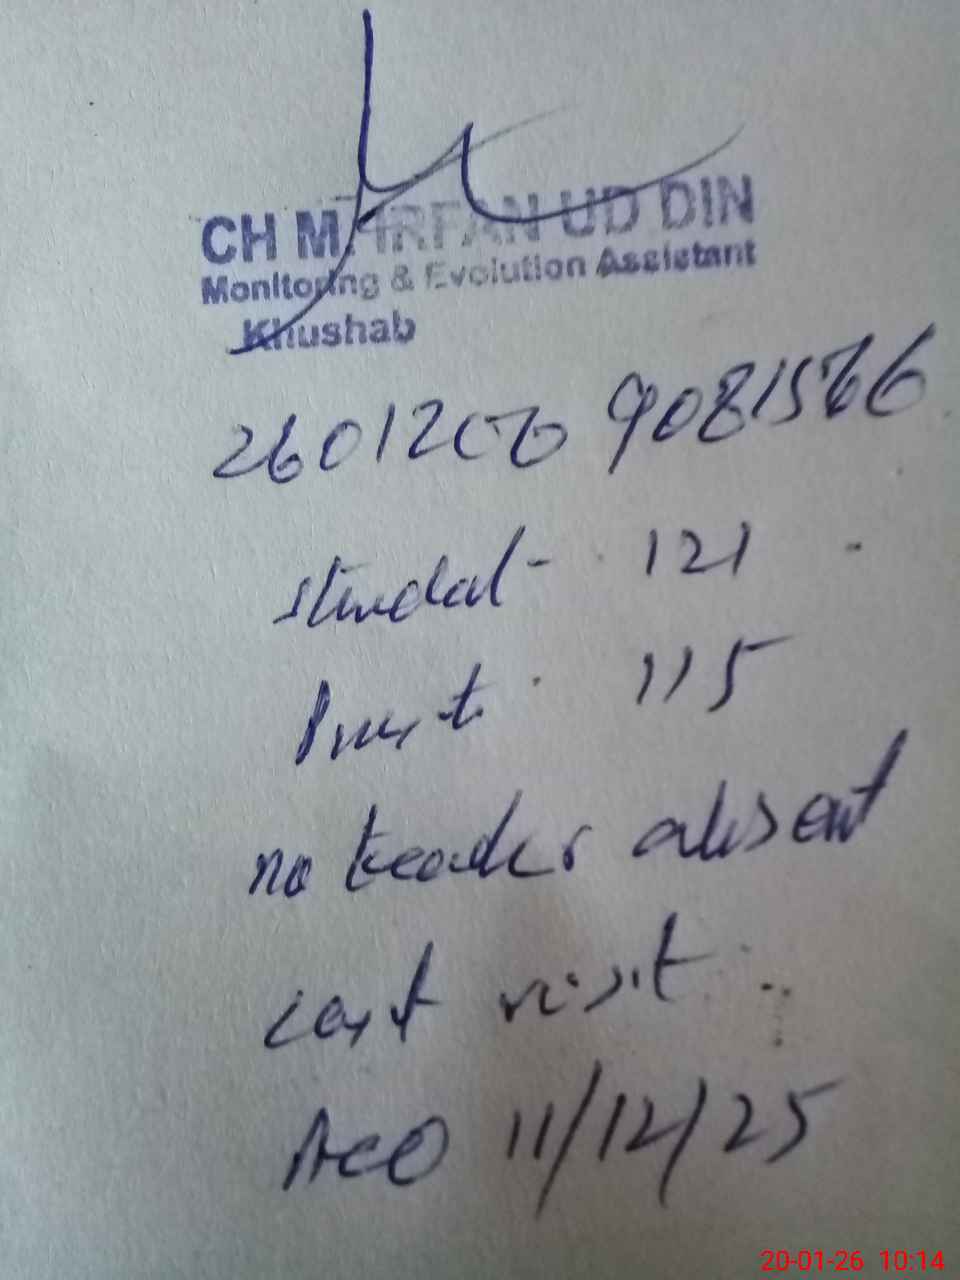 CH M. IRFAN UD DIN
Monitoring & Evolution Assistant
Khushab
121
115
no teacher absent
last visit
AEO 11/12/25
20-01-26 10:14